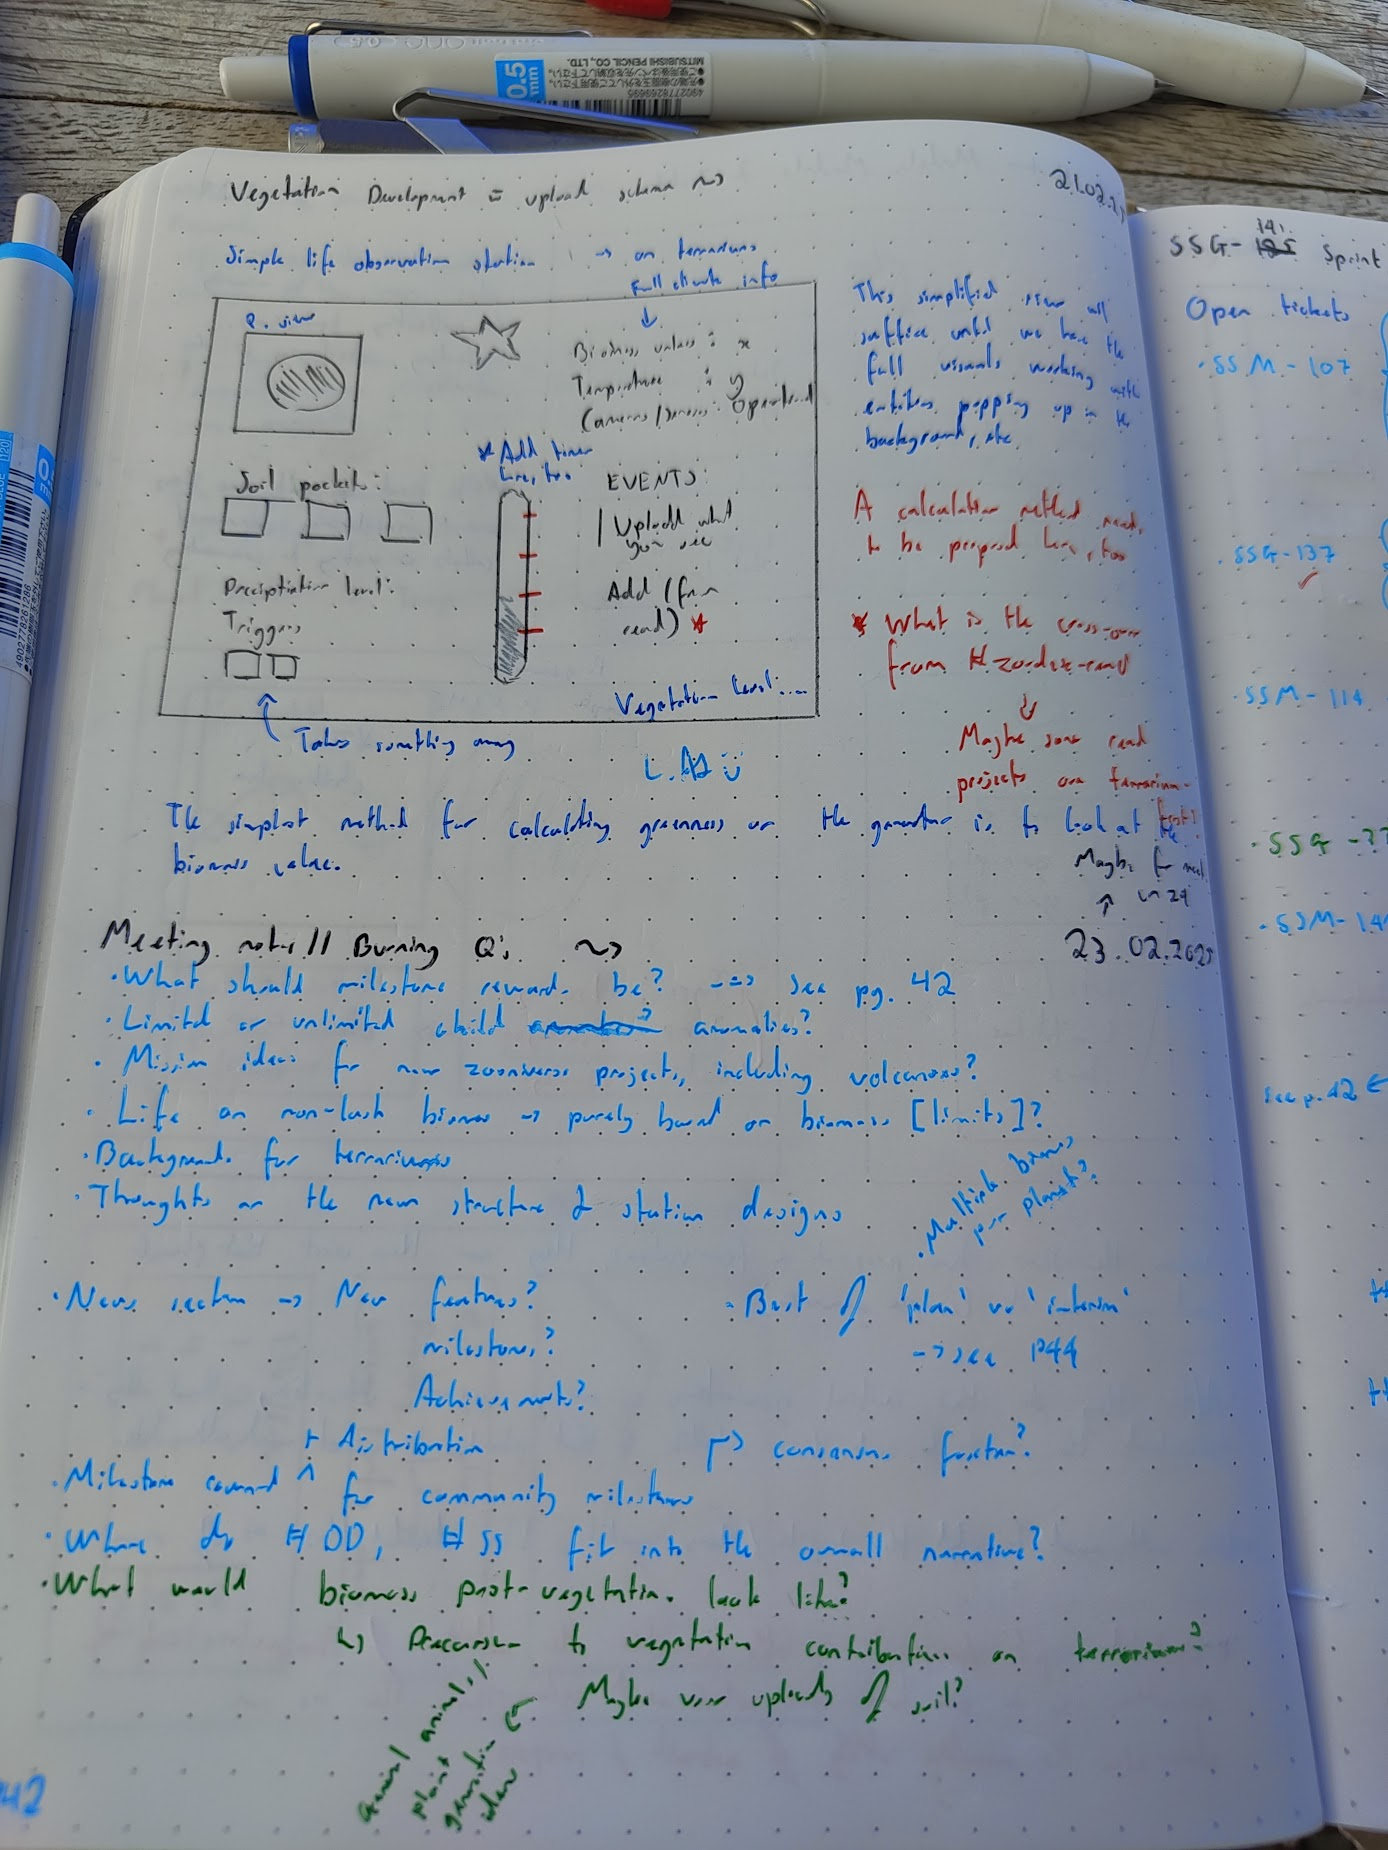 Vegetation Development = upload schema ~>
21.02.2
Simple life observation station → on terrariums
Full climate info
P. view
Biomass values: x
Temperature: y
Cameras/sensors: Operational
* Add time
here, too
Soil pockets:
EVENTS:
Upload what
you see
Precipitation level:
Triggers
Add (from
read) *
Vegetation level:...
Takes something away
This simplified view will
suffice until we have the
full visuals working with
entities popping up in the
background, etc
A calculation method needs
to be prepared here, too
* What is the cross-over
from
Maybe some read
projects on terrarium-
first?
The simplest method for calculating greenness or the generator is to look at the
biomass value.
Maybe for
Meeting notes // Burning Q's ~>
23.02.2025
· What should milestone rewards be? --> see pg. 42
· Limited or unlimited child anomalies?
· Mission ideas for new zooniverse projects, including volcanoes?
· Life on non-lush biomes → purely based on biomass [limits]?
· Backgrounds for terrariums
· Thoughts on the new structure & station designs
· Multiple biomes
per planet?
· News section → New features?
milestones?
Achievements?
· Best of 'plan' vs 'interim'
→ see P44
+ Distribution
· Milestone reward ^ for community milestones
consensus function?
· Where do #OD, #SS fit into the overall narrative?
· What would biomass post-vegetation look like?
↳ Precursor to vegetation contributions on terrariums?
Maybe user uploads of soil?
General animal/
plant
generation
idea
42
SSG-141 Sprint
Open tickets
· SSM-107
· SSG-137
· SSM-114
· SSG-77
· SSM-14
see p.42
0.5
mm
MITSUBISHI PENCIL CO., LTD.
4902778269695
4902778261286